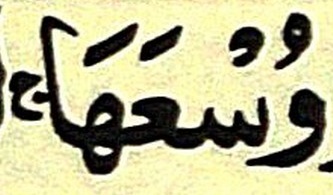 وُسْعَهَا ۚ